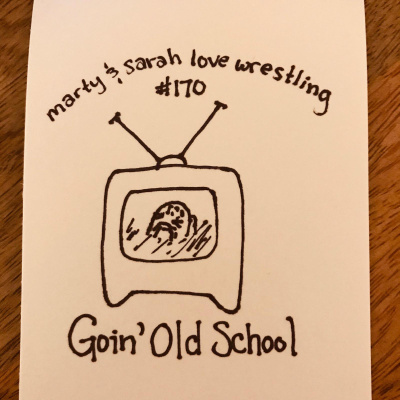 marty & sarah love wrestling
#170
Goin' Old School